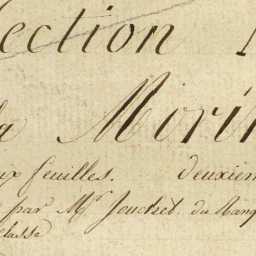 ection
la Morin
ux feuilles. deuxiem
par Mr. Jouchet du Rang
classe